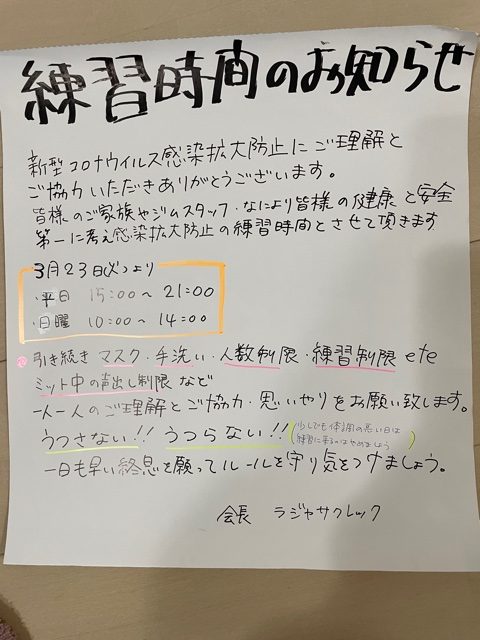 練習時間のお知らせ
新型コロナウイルス感染拡大防止にご理解と
ご協力いただきありがとうございます。
皆様のご家族やジムスタッフ・なにより皆様の健康と安全
第一に考え感染拡大防止の練習時間とさせて頂きます
3月23日(火)より
・平日 15:00~21:00
・日曜 10:00~14:00
引き続き マスク・手洗い・人数制限・練習制限 etc
ミット中の声出し制限 など
一人一人のご理解とご協力・思いやりをお願い致します。
うつさない!! うつらない!! (少しでも体調の悪い日は
練習に来るのはやめましょう)
一日も早い終息を願ってルールを守り気をつけましょう。
会長 ラジャサクレック